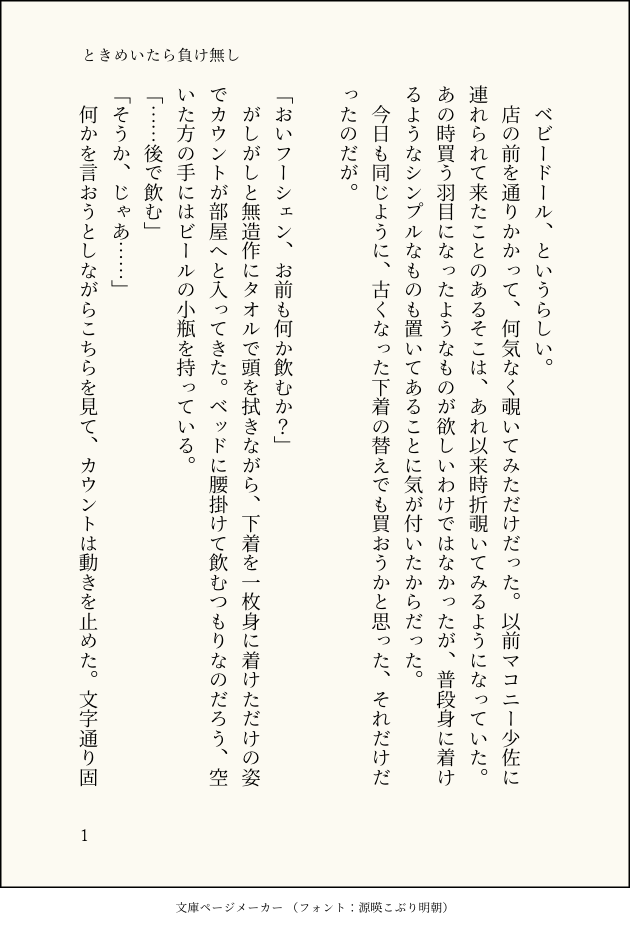 ときめいたら負け無し
ベビードール、というらしい。
店の前を通りかかって、何気なく覗いてみただけだった。以前マコニー少佐に
連れられて来たことのあるそこは、あれ以来時折覗いてみるようになっていた。
あの時買う羽目になったようなものが欲しいわけではなかったが、普段身に着け
るようなシンプルなものも置いてあることに気が付いたからだった。
今日も同じように、古くなった下着の替えでも買おうかと思った、それだけだ
ったのだが。
「おいフーシェン、お前も何か飲むか？」
がしがしと無造作にタオルで頭を拭きながら、下着を一枚身に着けただけの姿
でカウントが部屋へと入ってきた。ベッドに腰掛けて飲むつもりなのだろう、空
いた方の手にはビールの小瓶を持っている。
「……後で飲む」
「そうか、じゃあ……」
何かを言おうとしながらこちらを見て、カウントは動きを止めた。文字通り固
1
文庫ページメーカー（フォント：源暎こぶり明朝）